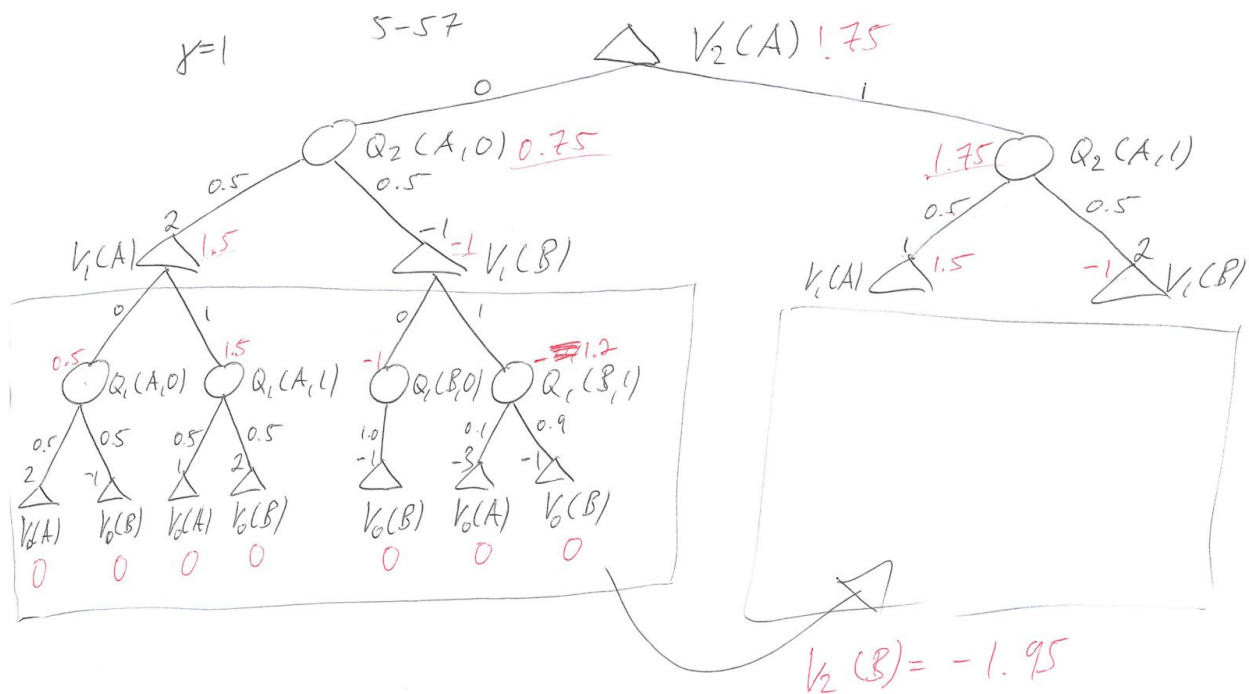 γ=1
5-57
V₂(A) 1.75
0
1
Q₂(A,0) 0.75
1.75 Q₂(A,1)
0.5 0.5
0.5 0.5
2 -1
1 2
V₁(A) 1.5 -1 V₁(B)
V₁(A) 1.5 -1 V₁(B)
0 1 0 1
0.5 1.5 -1 -1.2
Q₁(A,0) Q₁(A,1) Q₁(B,0) Q₁(B,1)
0.5 0.5 0.5 0.5 1.0 0.1 0.9
2 -1 1 2 -1 -3 -1
V₀(A) V₀(B) V₀(A) V₀(B) V₀(B) V₀(A) V₀(B)
0 0 0 0 0 0 0
V₂(B) = -1.95